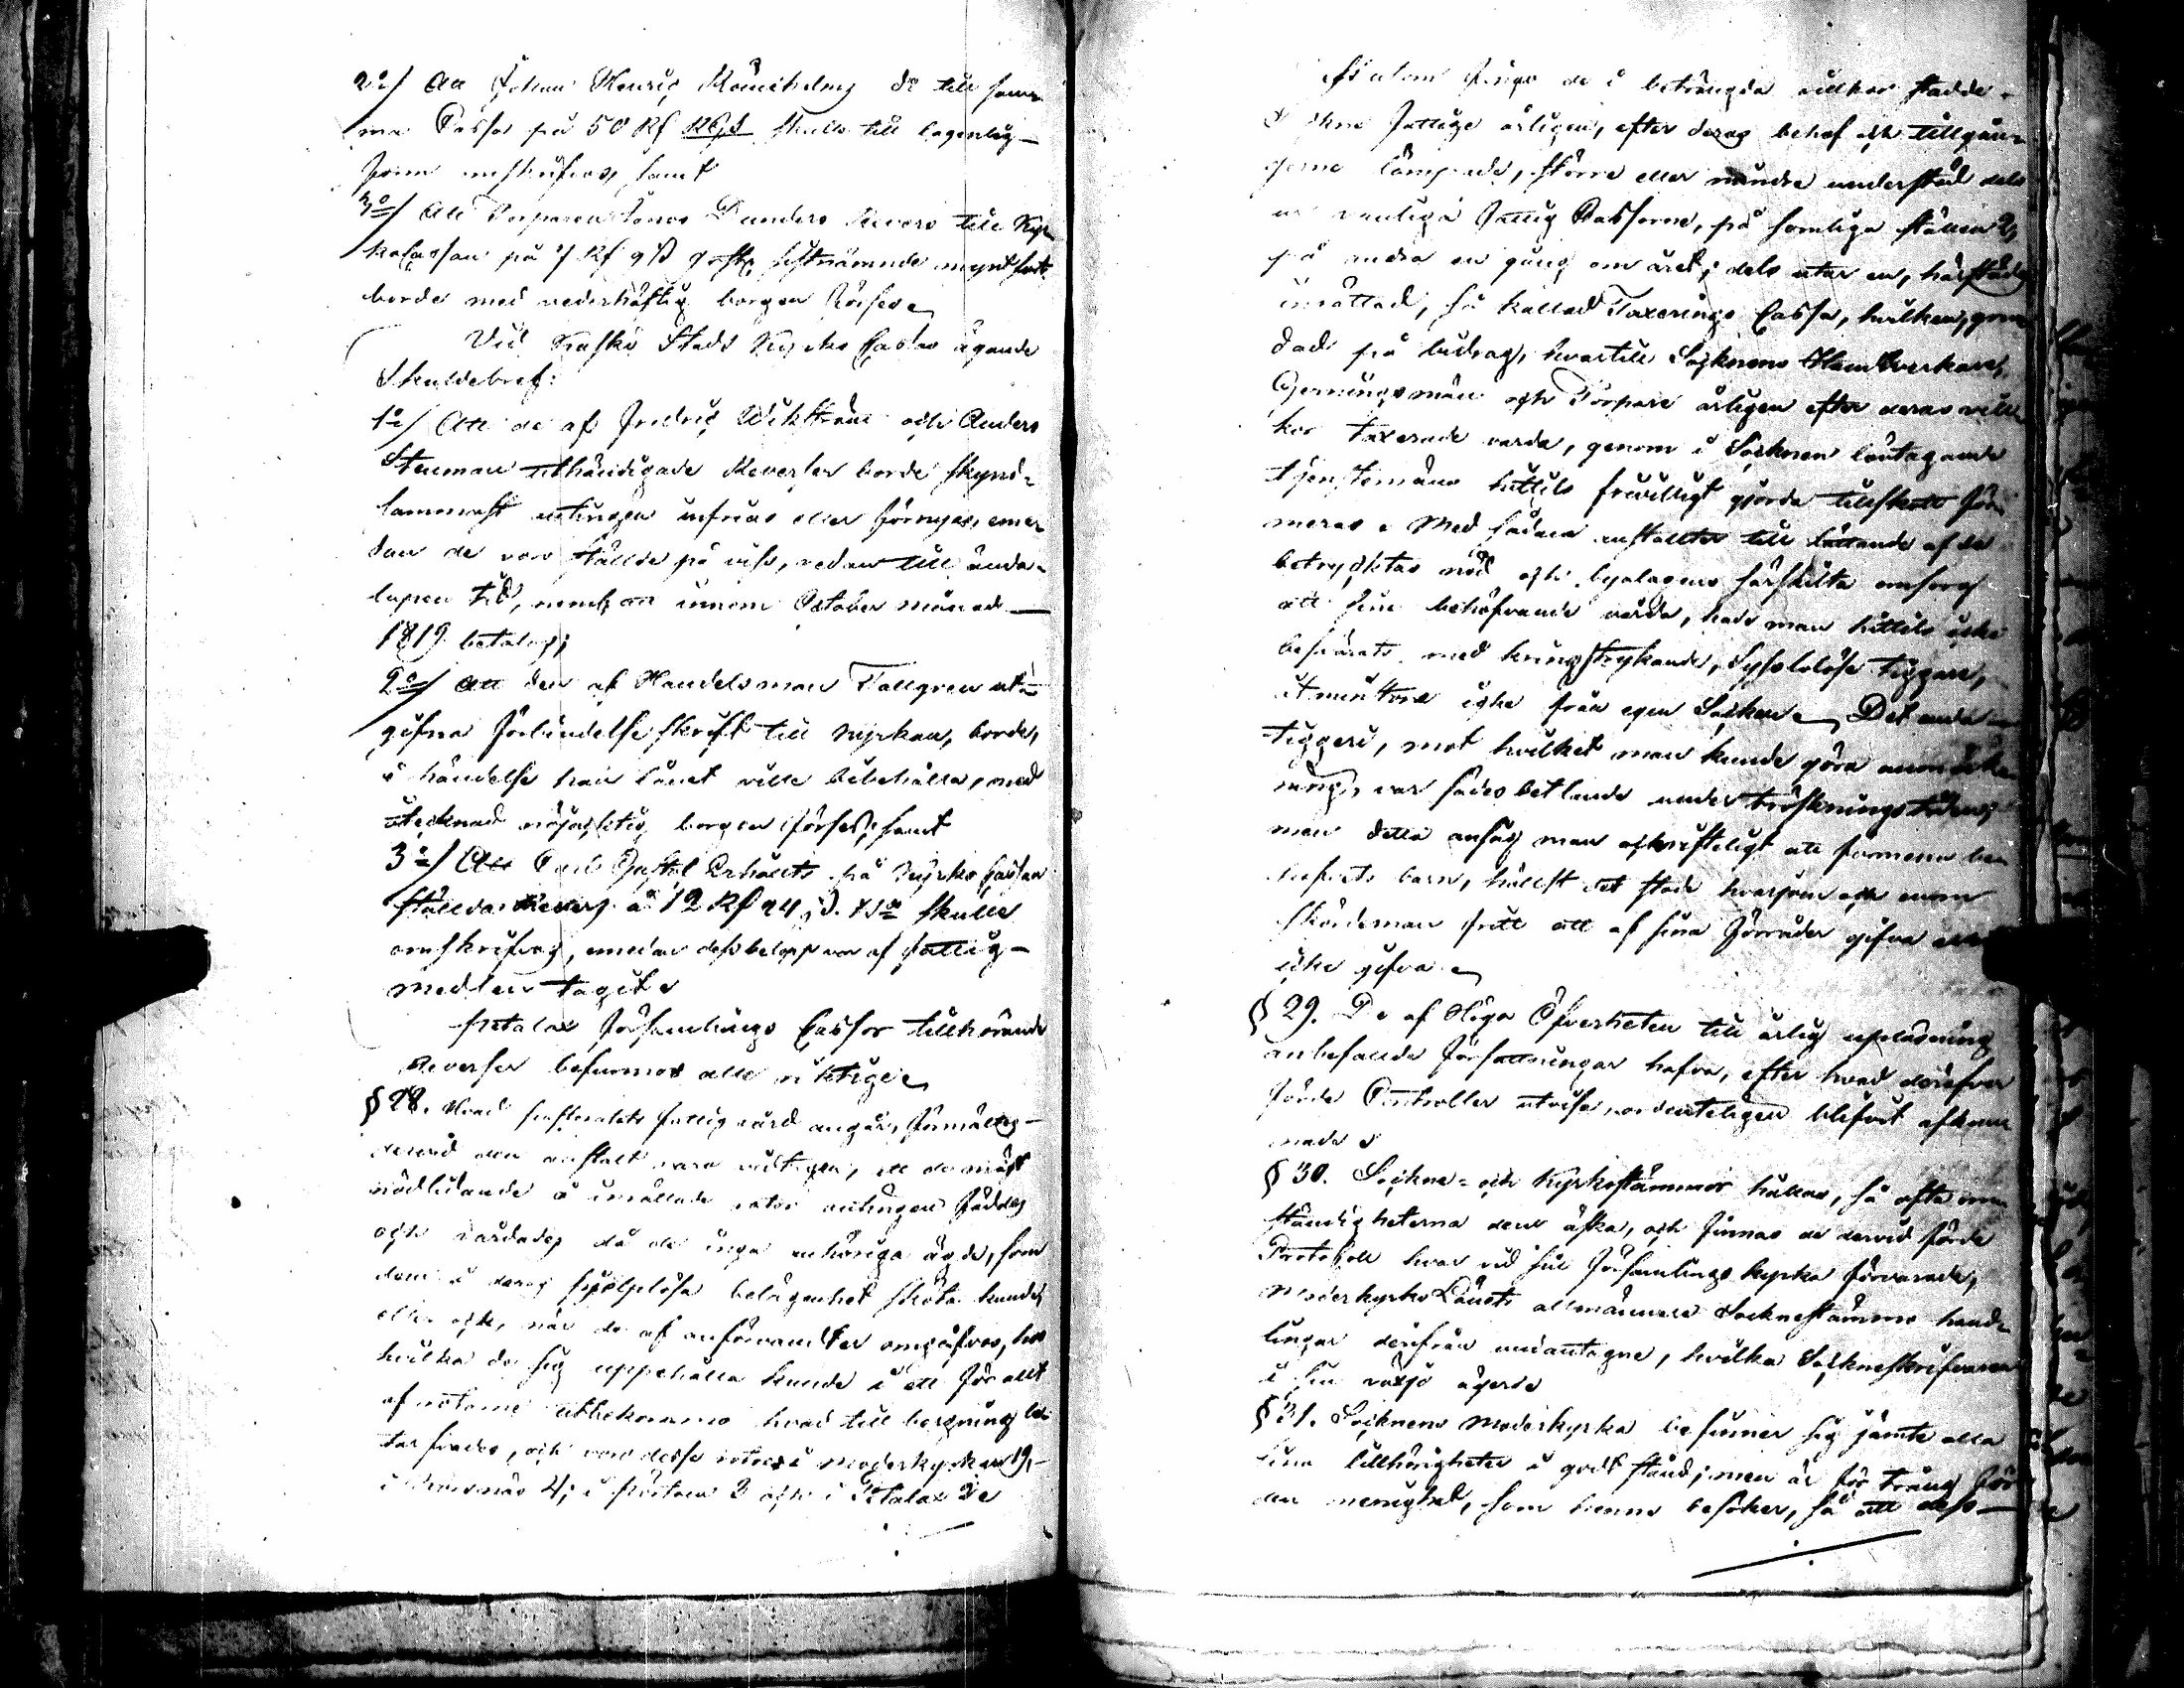 2o/ Att Johan Henric do till sam-
ma Cassa på 50 Rf RGs skulle till lagenlig
form omskrifvas, samt
3o/ Att Torparen Jonas Dunders Revers till Kyr-
koCassan på 7 Rf 9 sistnämnde mynt
borde med vederhäftig borgen förses
Vid Kaskö Stads Kyrko Cassas ägande
Skuldebref:
1o/ Att de af Fredric Wikström och Anders
Stenman tillhändigade Reverser borde skynd-
sammast antingen infrias eller förnyas, eme-
dan de voro ställde på viss, redan till ända-
lupen tid, neml. att innom October månad
1819 betalas;
2o/ Att den af Handelsman Tallgren ut-
gifna förbindelse skrift till Kyrkan, borde,
i händelse han lånet ville bibehålla, med
tecknad borgen förses; samt
3o/ Att Carl Gustaf på Kyrko Cassan
ställda Revers à 12 Rf 24 skulle
omskrifvas, emedan dess belopp var af fattig-
medlen tagit.
Petalax Församlings Cassor tillhörande
Reverser befunnos alle riktige
§ 28. Hvad Pastoratets fattigvård angår, förmältes
dervid den anstalt vara vidtagen, att de mäst
nödlidande å inrättade rotor antingen föddes
och vårdades då de inga anhöriga ägde, som
dem i deras hjelplösa belägenhet sköta kunde,
eller ock, när de af anförvandter omgåfvos, hos
hvilka de sig uppehålla kunde i ett för allt
af rotarne utbekommo hvad till bergning
och voro desse rotar i Moderkyrkan 19,
i 4; i Pörtom 3 och i Petalax 2
Fingo de i beträngda villkor stadde
fattige årligen, efter deras behof och tillgån-
garne lämpade, större eller mindre understöd dels
ur vanliga Fattig Cassorne, på somliga ställen 2,
på andra en gång om året; dels utur en, härstädes
inrättad, så kallad Taxerings Cassa, hvilken, grun-
dad på bidrag, hvartill Socknens Handtverkare,
Gerningsmän och Torpare årligen efter deras vill-
kor taxerade varda, genom i Socknen
tjenstemäns hittils frivilligt gjorda tillskott för-
meras. Med sådana anstalter till lättande af de
betrycktas nöd och byalagens särskilta omsorg
att sine behöfvande vårda, hade man hittils icke
besvärats med kringstrykande, sysslolöse tiggare,
åtminstone icke från egen Socken. Det enda
tiggeri, mot hvilket man kunde göra anmärk-
ning, var sådes betlande under tröskningstiden;
men detta ansåg man att
barn, hälst det stode hvarjom och enom
Skördeman fritt att af sina förråder gifva eller
icke gifva.
§ 29. De af Höga Öfverheten till årlig uplasning
anbefallde Författningar hafva, efter hvad deröfver
förde Controller utvisa, ordenteligen blifvit afkun-
nade.
§ 30. Sockne- och Kyrkostämmor hållas, så ofta om-
ständigheterna dem äska, och finnas de dervid förde
Protokoll hvar vid sin Församlings kyrka förvarade,
Moderkyrko allmännare Sockenstämmo hand-
lingar derifrån undantagne, hvilka Sockneskrifvaren
i sin ägerde
§ 31. Socknens Moderkyrka befinner sig jämte alla
sina tillhörigheter i godt stånd; men är för trång för
den menighet, som henne besöker, så att dess